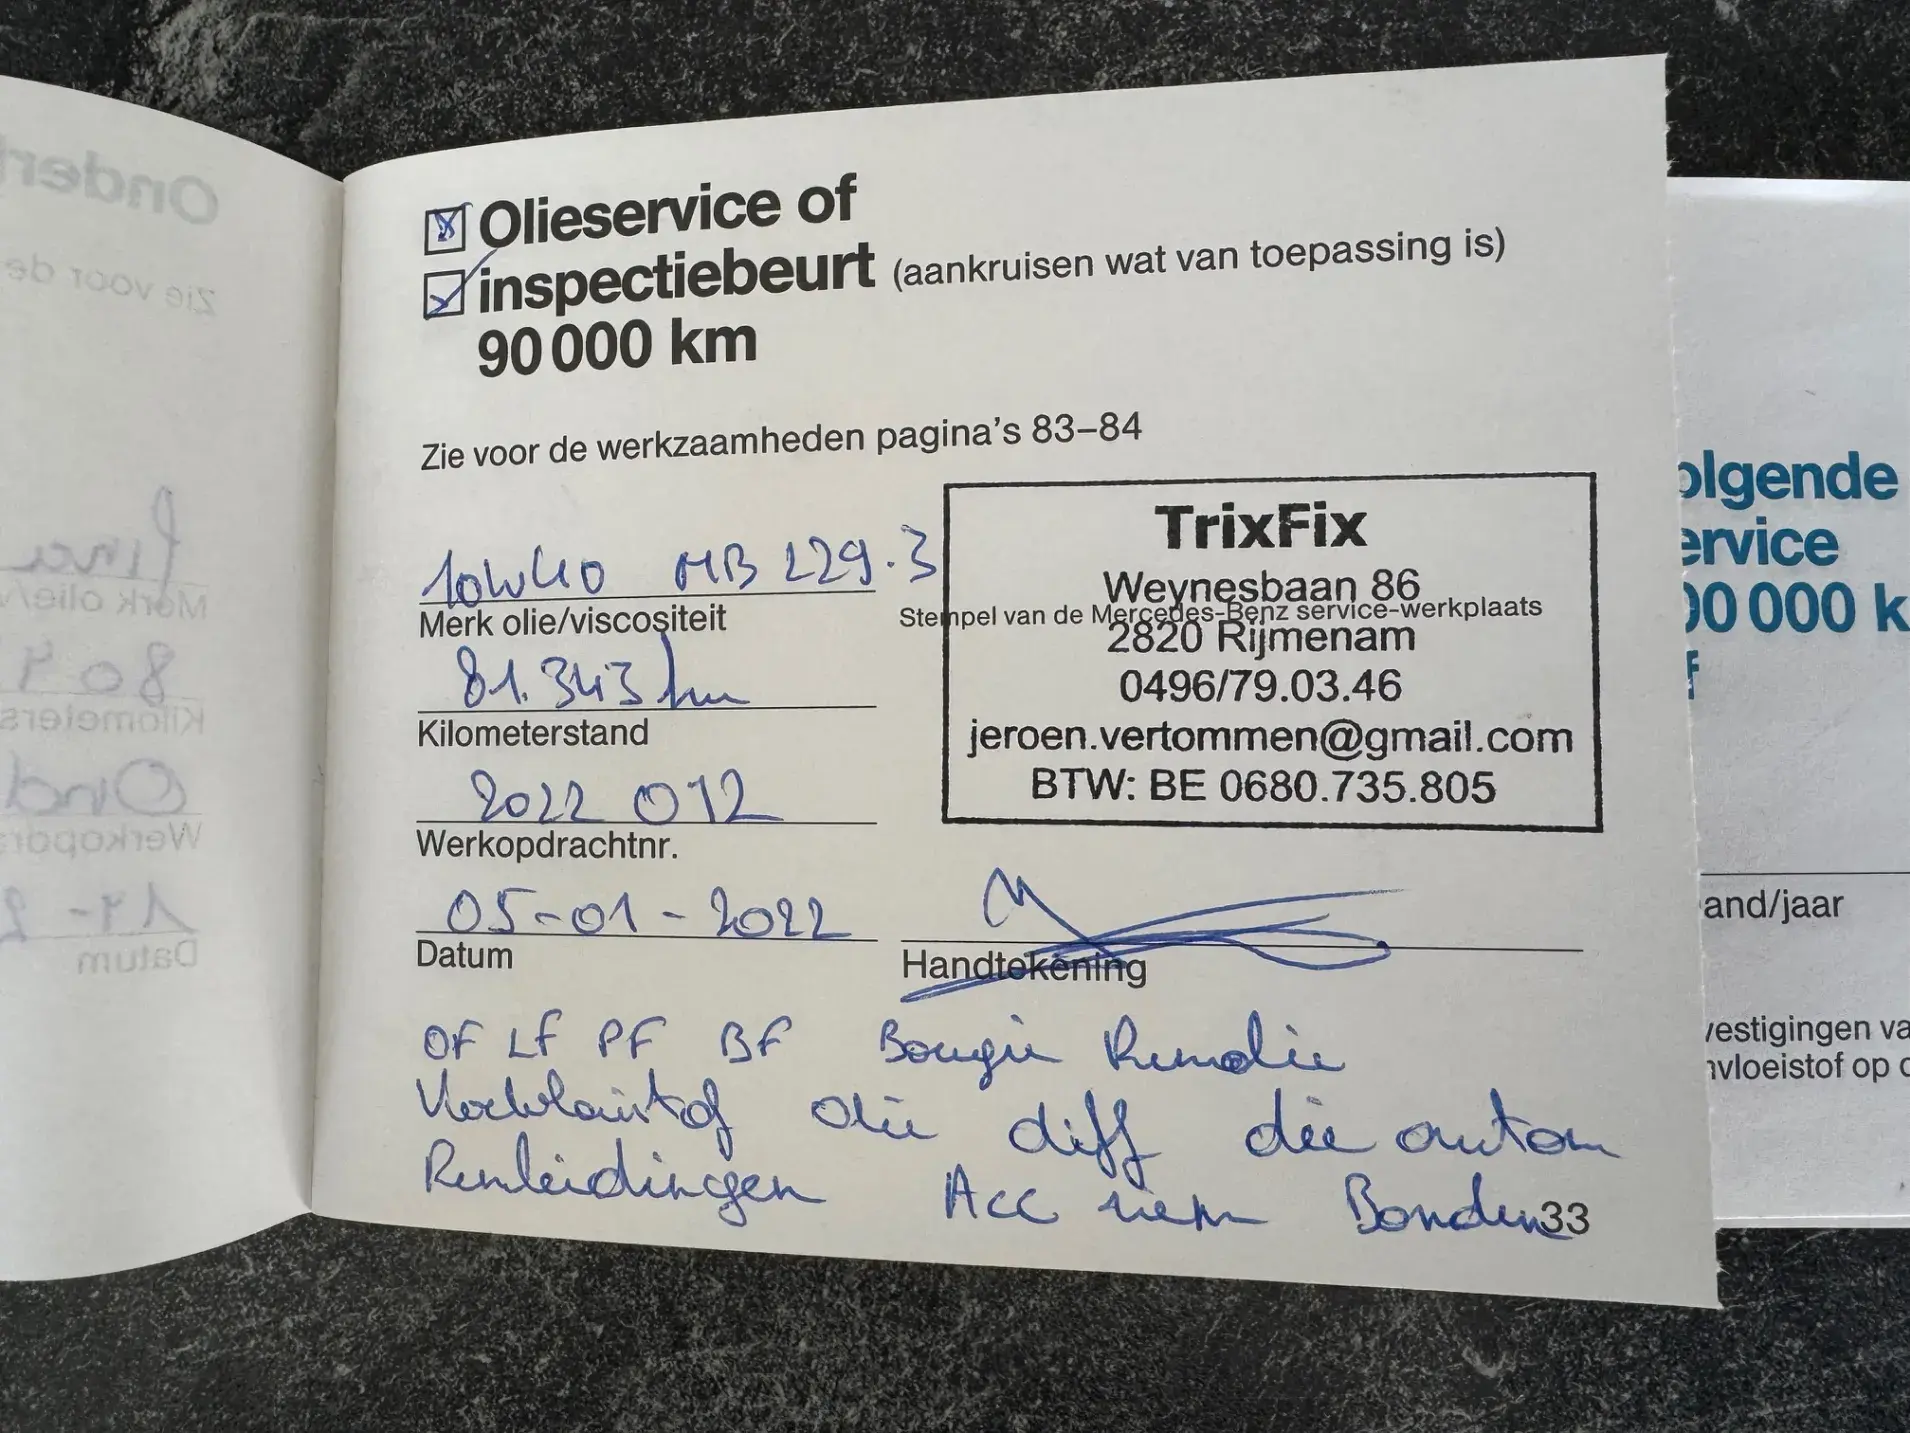 Olieservice of
inspectiebeurt (aankruisen wat van toepassing is)
90 000 km
Zie voor de werkzaamheden pagina's 83–84
10W40 MB 229.3
Merk olie/viscositeit
81.343 km
Kilometerstand
2022 012
Werkopdrachtnr.
05-01-2022
Datum
TrixFix
Weynesbaan 86
Stempel van de Mercedes-Benz service-werkplaats
2820 Rijmenam
0496/79.03.46
jeroen.vertommen@gmail.com
BTW: BE 0680.735.805
Handtekening
OF LF PF BF Bougie Remolie
Koelvloeistof olie diff olie autom
Remleidingen Acc riem Banden
33
olgende
ervice
00 000 k
f
and/jaar
vestigingen va
nvloeistof op
Onder
Zie voor de
Merk olie/v
Kilometers
Ond
Werkopdra
Datum